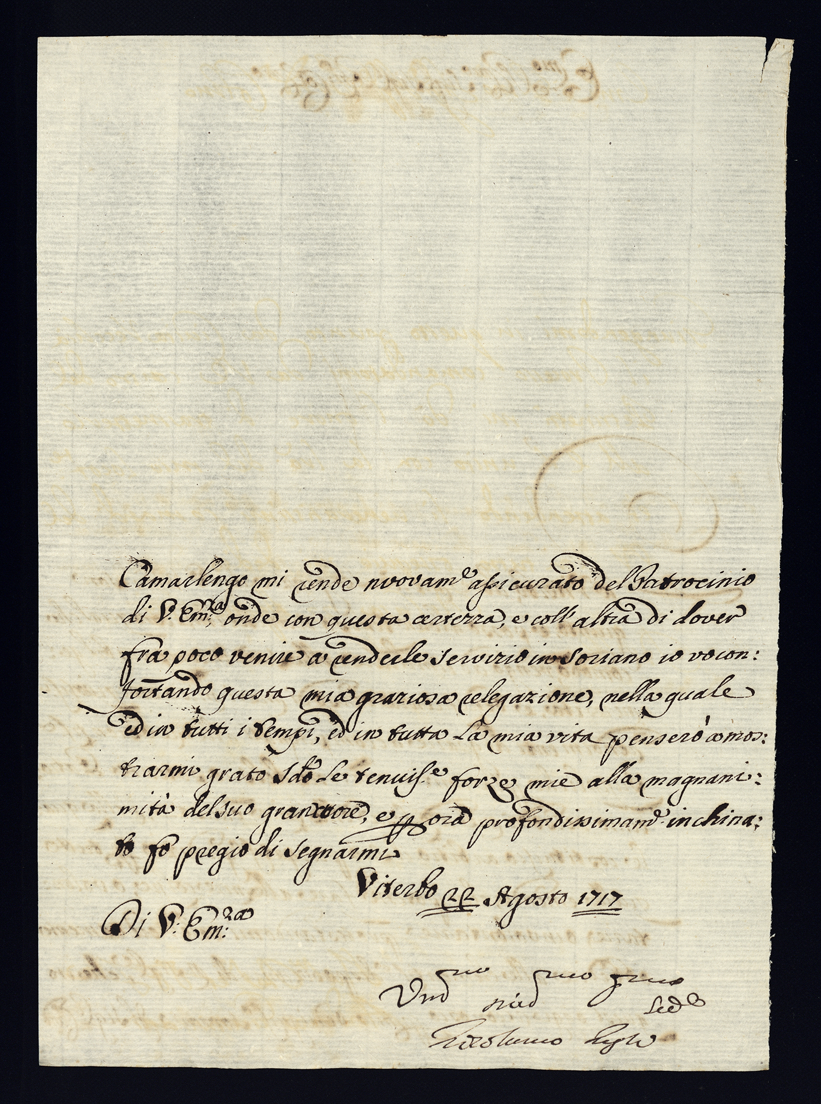 Camarlengo mi rende nuovam.e assicurato del Patrocinio
di V. Em.ra, onde con questa certezza, e coll' altra di dover
fra poco venire a renderle servizio in Soriano io vo con:
fortando questa mia graziosa relegazione, nella quale
ed in tutti i tempi, ed in tutta la mia vita penserò a mos:
trarmi grato s.do le tenuiss.e forze mie alla magnani:
mità del suo gran core, e p ora profondissimam.e inchina:
to fo pregio di segnarmi
Viterbo 22 Agosto 1717
Di V. Em.ra